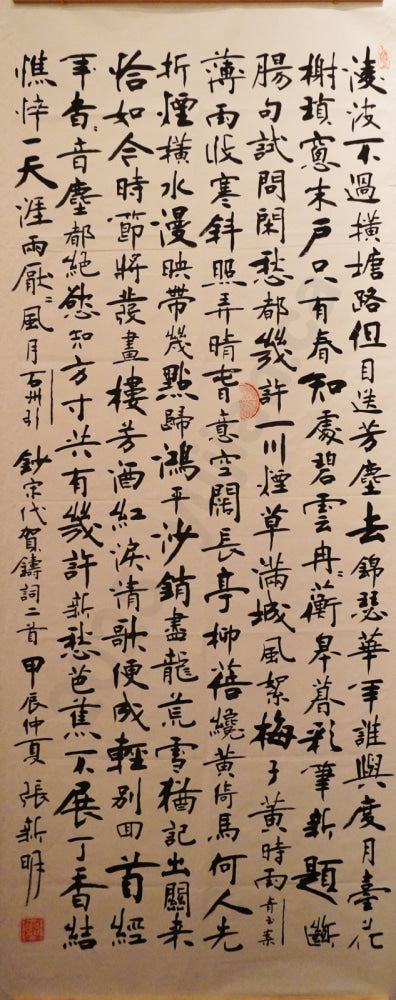 淩波不過橫塘路但目送芳塵去錦瑟華年誰與度月臺花
榭瑣窻朱戶只有春知處碧雲冉〻蘅皋暮彩筆新題斷
腸句試問閑愁都幾許一川煙草滿城風絮梅子黃時雨青玉案
薄雨收寒斜照弄晴春意空闊長亭柳蓓纔黃倚馬何人先
折煙橫水漫映帶幾點歸鴻平沙銷盡龍荒雪猶記出關來
恰如今時節將發畫樓芳酒紅淚清歌便成輕別回首經
年杳〻音塵都絕慾知方寸共有幾許新愁芭蕉不展丁香結
憔悴一天涯兩厭〻風月石州引 鈔宋代賀鑄詞二首 甲辰仲夏 張新明